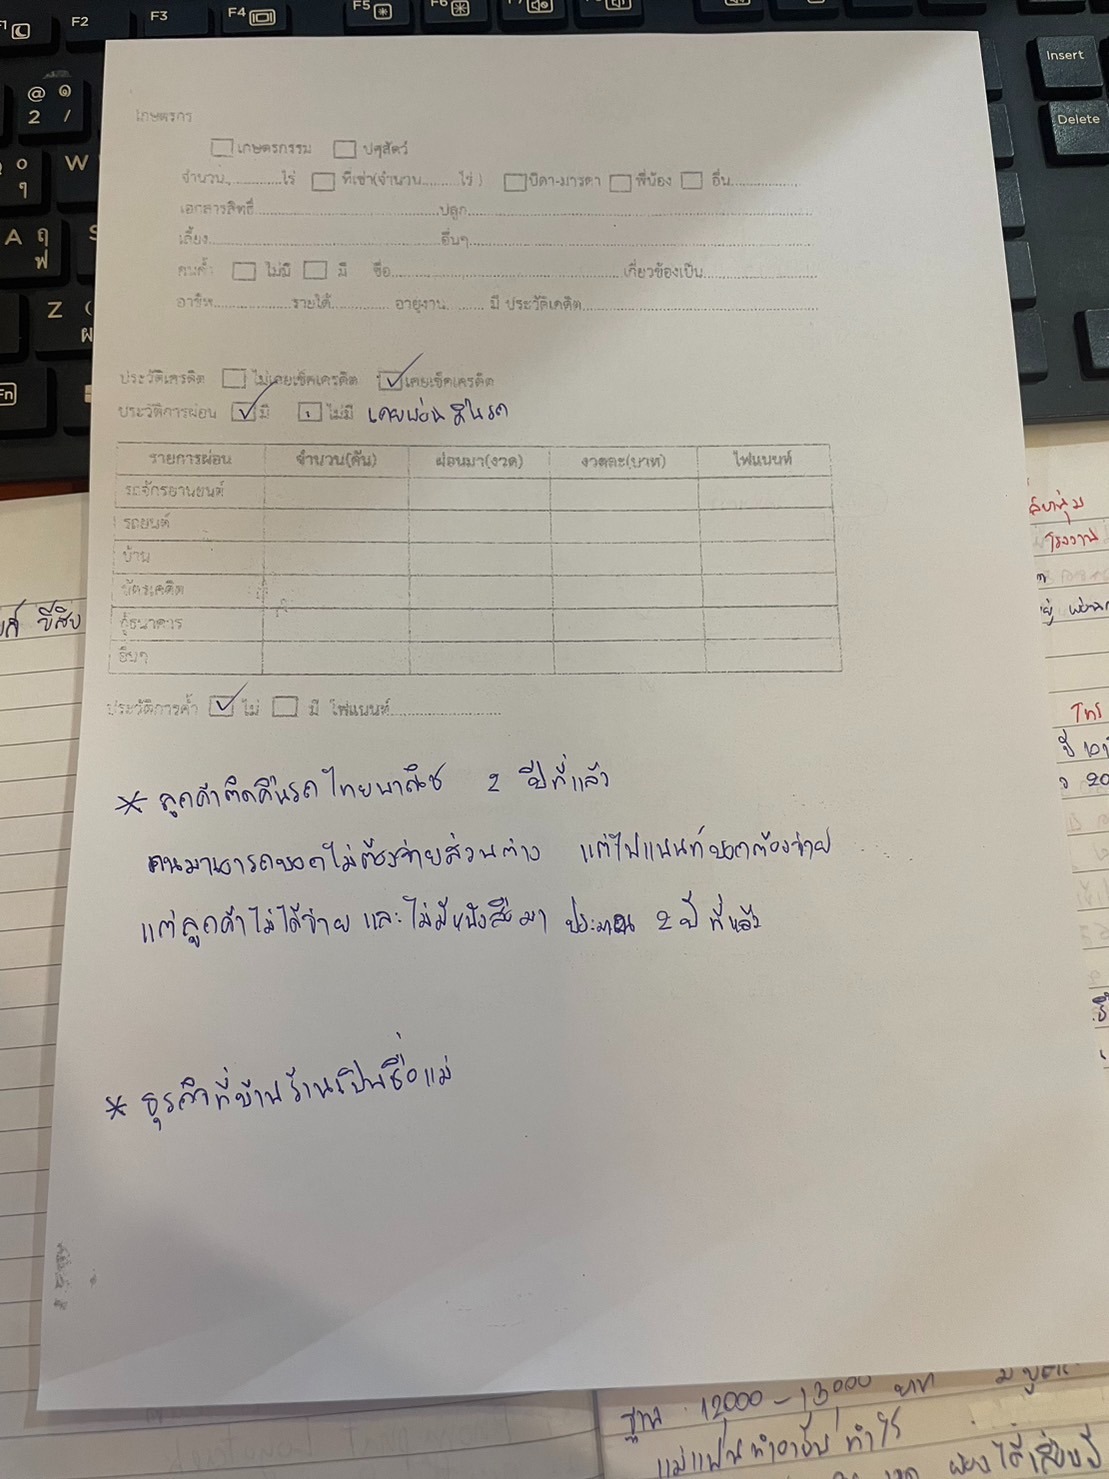 F1 F2 F3 F4 F5 F6 F7
Insert
Delete
@ ๑
2 /
W
A ฤ
ฟ
Z
Fn
เกษตรกร
เกษตรกรรม ปศุสัตว์
จำนวน..............ไร่ ที่เช่า(จำนวน.........ไร่ ) บิดา-มารดา พี่น้อง อื่น.................
เอกสารสิทธิ์............................................ปลูก....................................................................................
เลี้ยง.......................................................อื่นๆ....................................................................................
คนค้ำ ไม่มี มี ชื่อ.......................................................เกี่ยวข้องเป็น...........................
อาชีพ...................รายได้.............. อายุงาน......... มี ประวัติเคดิต.......................................................
ประวัติเครดิต ไม่เคยเช็คเครดิต ✓ เคยเช็คเครดิต
ประวัติการผ่อน ✓ มี ไม่มี เคยผ่อน คืนรถ
รายการผ่อน จำนวน(คัน) ผ่อนมา(งวด) งวดละ(บาท) ไฟแนนท์
รถจักรยานยนต์
รถยนต์
บ้าน
บัตรเคดิต
กู้ธนาคาร
อื่นๆ
ประวัติการค้ำ ✓ ไม่ มี ไฟแนนท์............................
* ลูกค้าติดคืนรถไทยพาณิช 2 ปีที่แล้ว
คนมาเอารถบอกไม่ต้องจ่ายส่วนต่าง แต่ไฟแนนท์บอกต้องจ่าย
แต่ลูกค้าไม่ได้จ่าย และไม่มีหนังสือมา ประมาณ 2 ปี ที่แล้ว
* ธุรกิจที่บ้านร้านเป็นชื่อแม่
โรงงาน
โทร
ฐาน 12,000 - 13,000 บาท
แม่แฟนทำอาชีพ ทำไร่